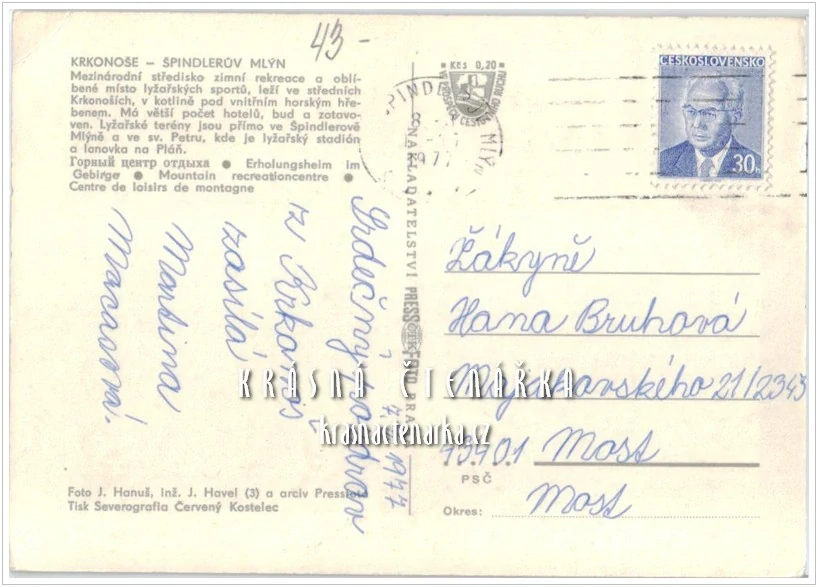 43-
KRKONOŠE – ŠPINDLERŮV MLÝN
Mezinárodní středisko zimní rekreace a oblí-
bené místo lyžařských sportů, leží ve středních
Krkonoších, v kotlině pod vnitřním horským hře-
benem. Má větší počet hotelů, bud a zotavo-
ven. Lyžařské terény jsou přímo ve Špindlerově
Mlýně a ve sv. Petru, kde je lyžařský stadión
a lanovka na Pláň.
Горный центр отдыха ● Erholungsheim im
Gebirge ● Mountain recreationcentre ●
Centre de loisirs de montagne
Srdečný pozdrav
z Krkonoš
zasílá
Martina
7. 1977
Foto J. Hanuš, inž. J. Havel (3) a arciv Pressfoto
Tisk Severografia Červený Kostelec
NAKLADATELSTVÍ PRESSFOTO PRA
ČTK
Kčs 0,20
ŠPINDLERŮV MLÝN
1977
ČESKOSLOVENSKO
30h
Žákyně
Hana Bruhová
21/2343
43401 Most
PSČ
Most
Okres:
KRÁSNÁ ČTENÁŘKA
krasnactenarka.cz